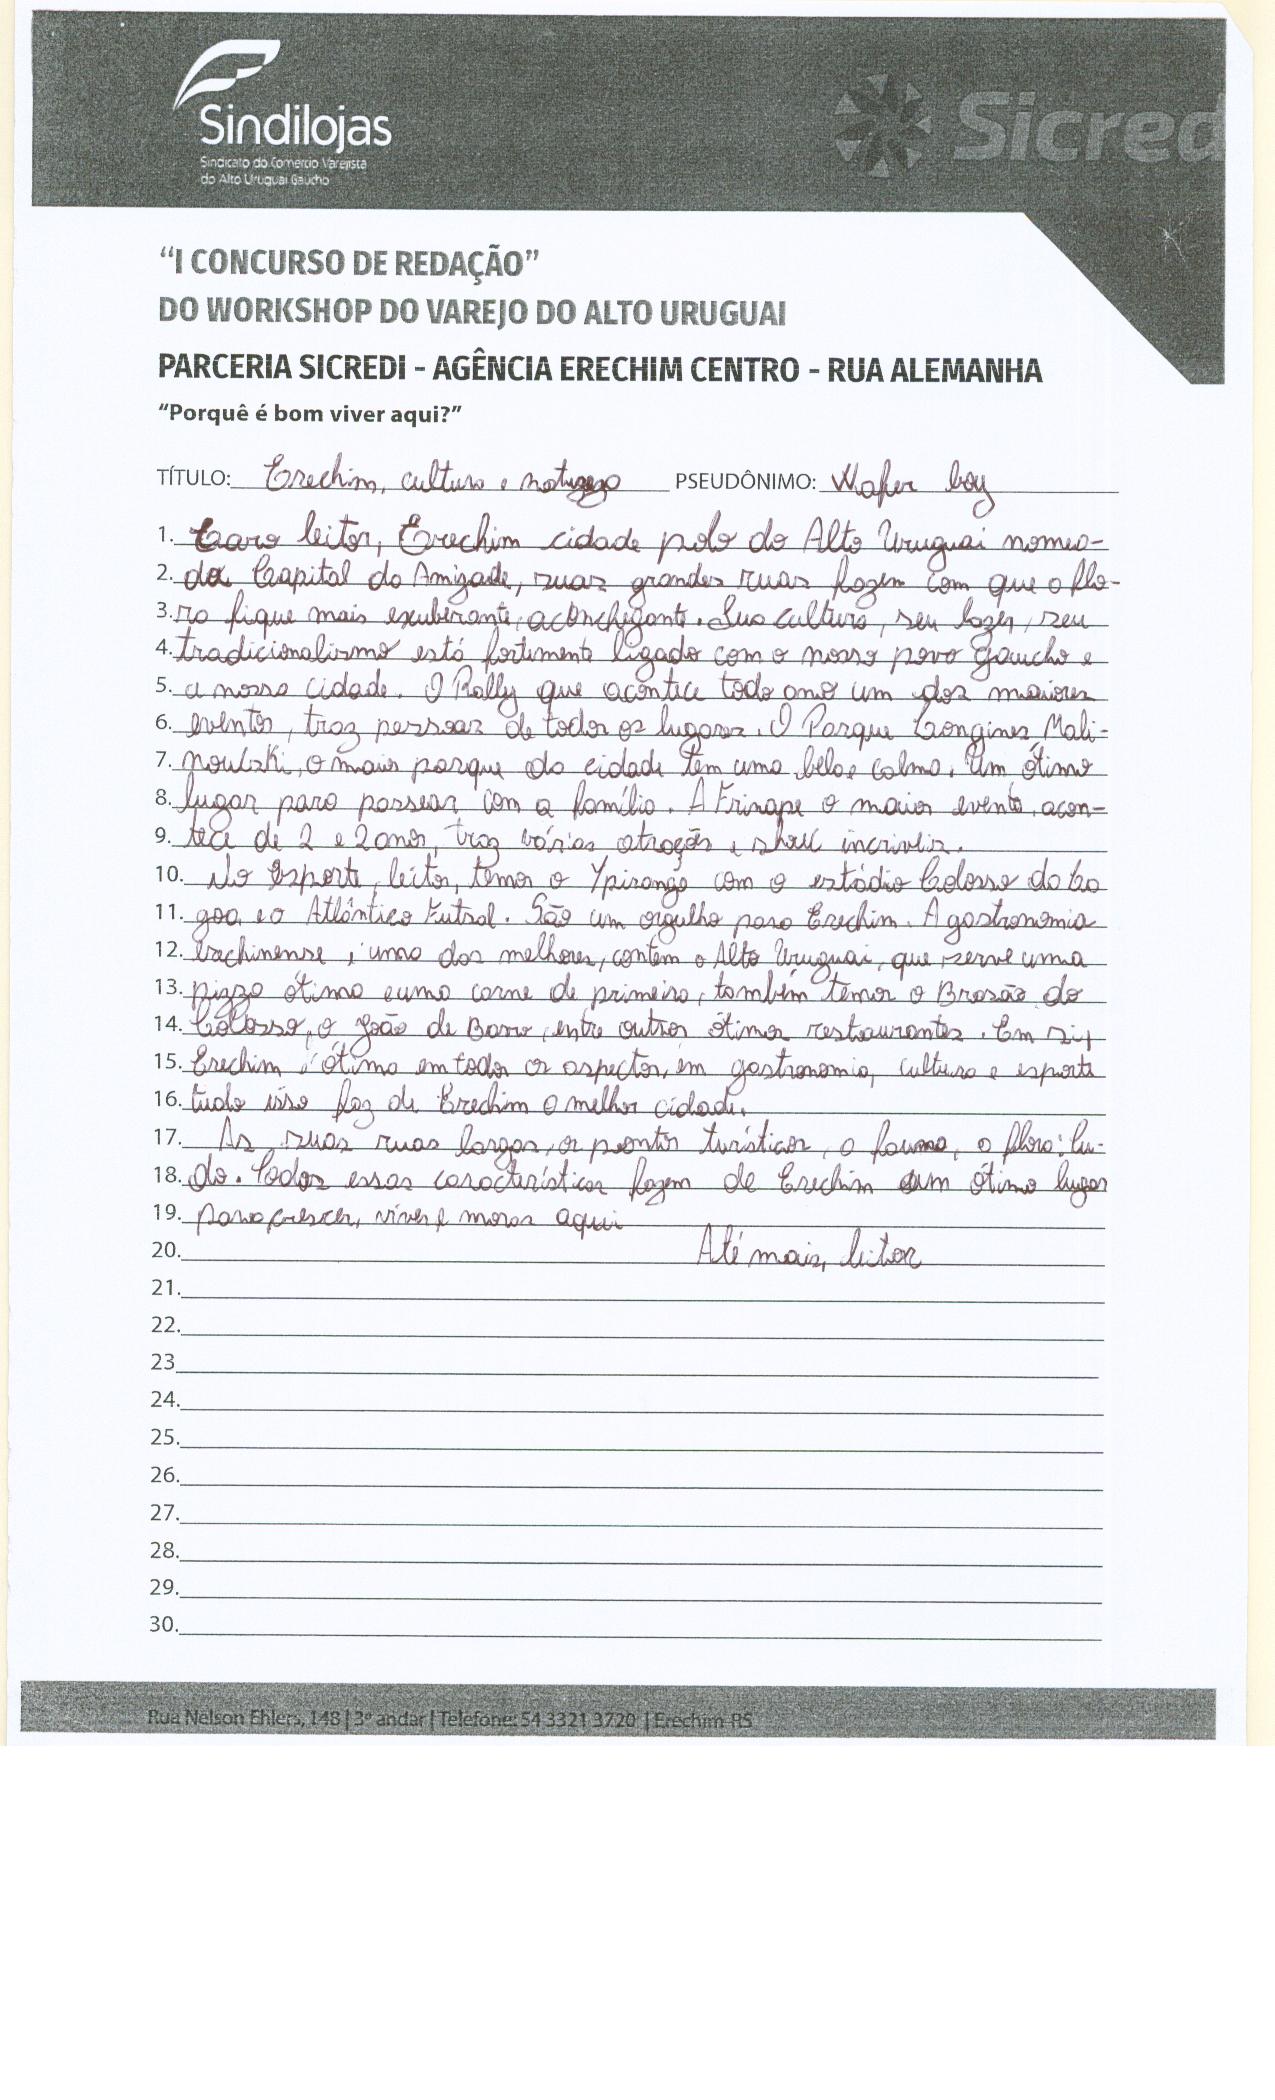 Sindilojas
Sindicato do Comercio Varejista
do Alto Uruguai Gaúcho
Sicred
“I CONCURSO DE REDAÇÃO”
DO WORKSHOP DO VAREJO DO ALTO URUGUAI
PARCERIA SICREDI - AGÊNCIA ERECHIM CENTRO - RUA ALEMANHA
“Porquê é bom viver aqui?”
TÍTULO: Erechim, cultura e natureza PSEUDÔNIMO: Wafer boy
1. Caro leitor, Erechim cidade polo do Alto Uruguai nomea-
2. da Capital da Amizade, suas grandes ruas fazem com que a flo-
3. ra fique mais exuberante, aconchegante. Sua cultura, seu lazer, seu
4. tradicionalismo está fortemente ligado com o nosso povo gaucho e
5. a nossa cidade. O Rally que acontece todo ano um dos maiores
6. eventos, traz pessoas de todos os lugares. O Parque Longines Mali-
7. nouski, o maior parque da cidade tem uma bela e calma. Um ótimo
8. lugar para passear com a família. A Frinape o maior evento, acon-
9. tece de 2 e 2 anos, traz várias atrações e show incriveis.
10. No esporte, leitor, temos o Ypiranga com o estádio Colosso da La
11. goa e o Atlântico Futsal. São um orgulho para Erechim. A gastronomia
12. erechinense, é uma das melhores, contém o Alto Uruguai, que serve uma
13. pizza ótima e uma carne de primeira, também temos o Brasão do
14. Colosso, o João de Barro, entre outros ótimos restaurantes. Em si,
15. Erechim é ótima em todos os aspectos, em gastronomia, cultura e esporte
16. tudo isso faz de Erechim a melhor cidade.
17. As suas ruas largas, os pontos turísticos, a fauna, a flora: tu-
18. do. Todas essas características fazem de Erechim um ótimo lugar
19. para crescer, viver e morar aqui
20. Até mais, leitor
21.
22.
23
24.
25.
26.
27.
28.
29.
30.
Rua Nelson Ehlers, 148 | 3º andar | Telefone: 54 3321 3720 | Erechim-RS